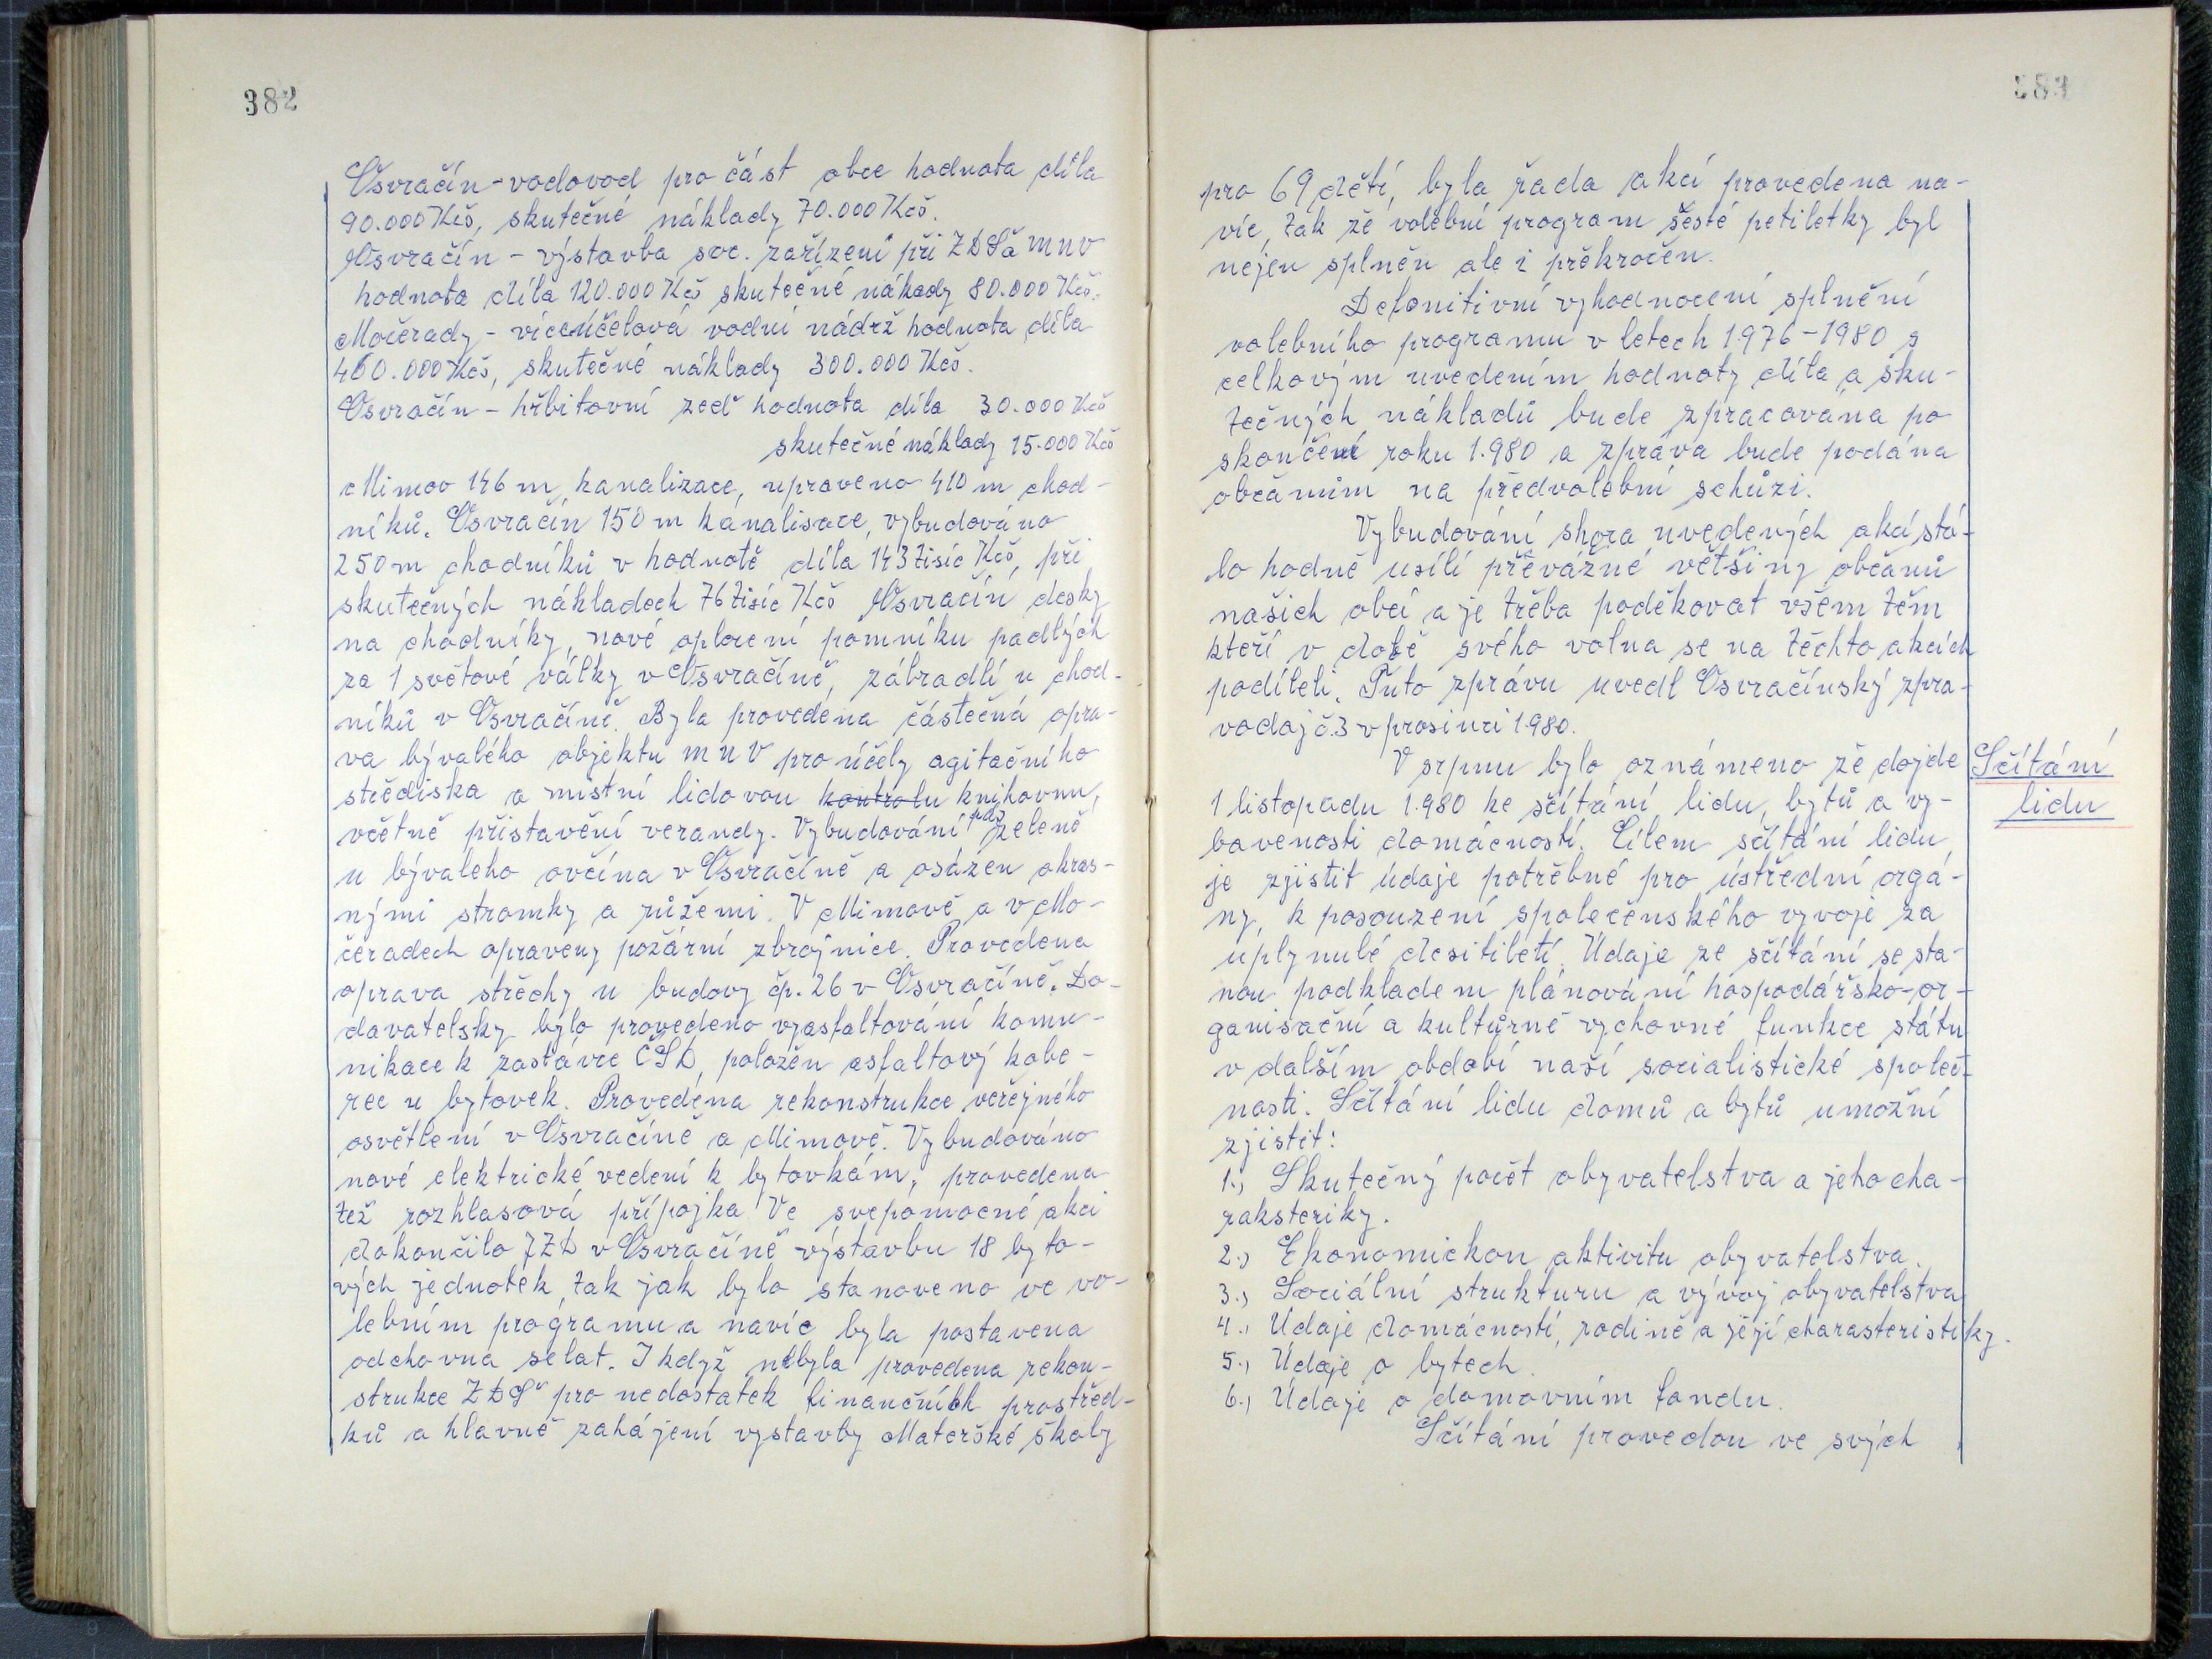 382
Osvračín - vodovod pro část obce hodnota díla
90.000 Kčs, skutečné náklady 70.000 Kčs.
Osvračín - výstavba soc. zařízení při ZDŠ a MNV
hodnota díla 120.000 Kčs skutečné nákady 80.000 Kčs.
Močerady - víceúčelová vodní nádrž hodnota díla
400.000 Kčs, skutečné náklady 300.000 Kčs.
Osvračín - hřbitovní zeď hodnota díla 30.000 Kčs
skutečné náklady 15.000 Kčs
Mimov 146 m, kanalizace, upraveno 410 m chod-
níků. Osvračín 150 m kanálisace, vybudováno
250 m chodníků v hodnotě díla 143 tisíc Kčs, při
skutečných nákladech 76 tisíc Kčs Osvračín desky
na chodníky, nové oplocení pomníku padlých
za 1 světové války v Osvračíně, zábradlí u chod-
níků v Osvračíně. Byla provedena částečná opra-
va bývalého objektu MNV pro účely agitačního
střediska a místní lidovou kontrolu knihovnu,
včetně přistavění verandy. Vybudování pás zeleně
u bývalého ovčína v Osvračíně a osázen okras-
nými stromky a růžemi. V Mimově a v Mo-
čeradech opraveny požární zbrojnice. Provedena
oprava střechy u budovy čp. 26 v Osvračíně. Do-
davatelsky bylo provedeno vyasfaltování komu-
nikace k zastávce ČSD, položen asfaltový kobe-
rec u bytovek. Provedena rekonstrukce veřejného
osvětlení v Osvračíně a Mimově. Vybudováno
nové elektrické vedení k bytovkám, provedena
též rozhlasová přípojka Ve svépomocné akci
dokončilo JZD v Osvračíně výstavbu 18 byto-
vých jednotek, tak jak bylo stanoveno ve vo-
lebním programu a navíc byla postavena
odchovna selat. I když nebyla provedena rekon-
strukce ZDŠ pro nedostatek finančních prostřed-
ků a hlavně zahájení výstavby Mateřské školy
383
pro 69 dětí, byla řada akcí provedena na-
víc, tak že volební program šesté petiletky byl
nejen splněn ale i překročen.
Defonitivní vyhodnocení splnění
volebního programu v letech 1976-1980 s
celkovým uvedením hodnoty díla a sku-
tečných nákladů bude zpracována po
skončení roku 1.980 a zpráva bude podána
občanům na předvolební schůzi.
Vybudování shora uvedených akcí stá-
lo hodně usílí převážné většiny občanů
našich obcí a je třeba poděkovat všem těm
kteří v době svého volna se na těchto akcích
podíleli. Tuto zprávu uvedl Osvračínský zpra-
vodaj č.3 v prosinci 1.980.
V srpnu bylo oznámeno že dojde
Sčítání
lidu
1 listopadu 1.980 ke sčítání lidu, bytů a vy-
bavenosti domácností. Cílem sčítání lidu
je zjistit údaje potřebné pro ústřední orgá-
ny, k posouzení společenského vyvoje za
uplynulé desitiletí. Údaje ze sčítání se sta-
nou podkladem plánování hospodářsko-or-
ganisační a kultůrně vychovné funkce státu
v dalším období naší socialistické společ-
nosti. Sčítání lidu domů a bytů umožní
zjistit:
1., Skutečný počet obyvatelstva a jeho cha-
raksteriky.
2., Ekonomickou aktivitu obyvatelstva.
3., Sociální strukturu a vývoj obyvatelstva
4., Údaje domácností, rodině a její charasteristiky.
5., Údaje o bytech.
6., Údaje o domovním fondu.
Sčítání provedou ve svých